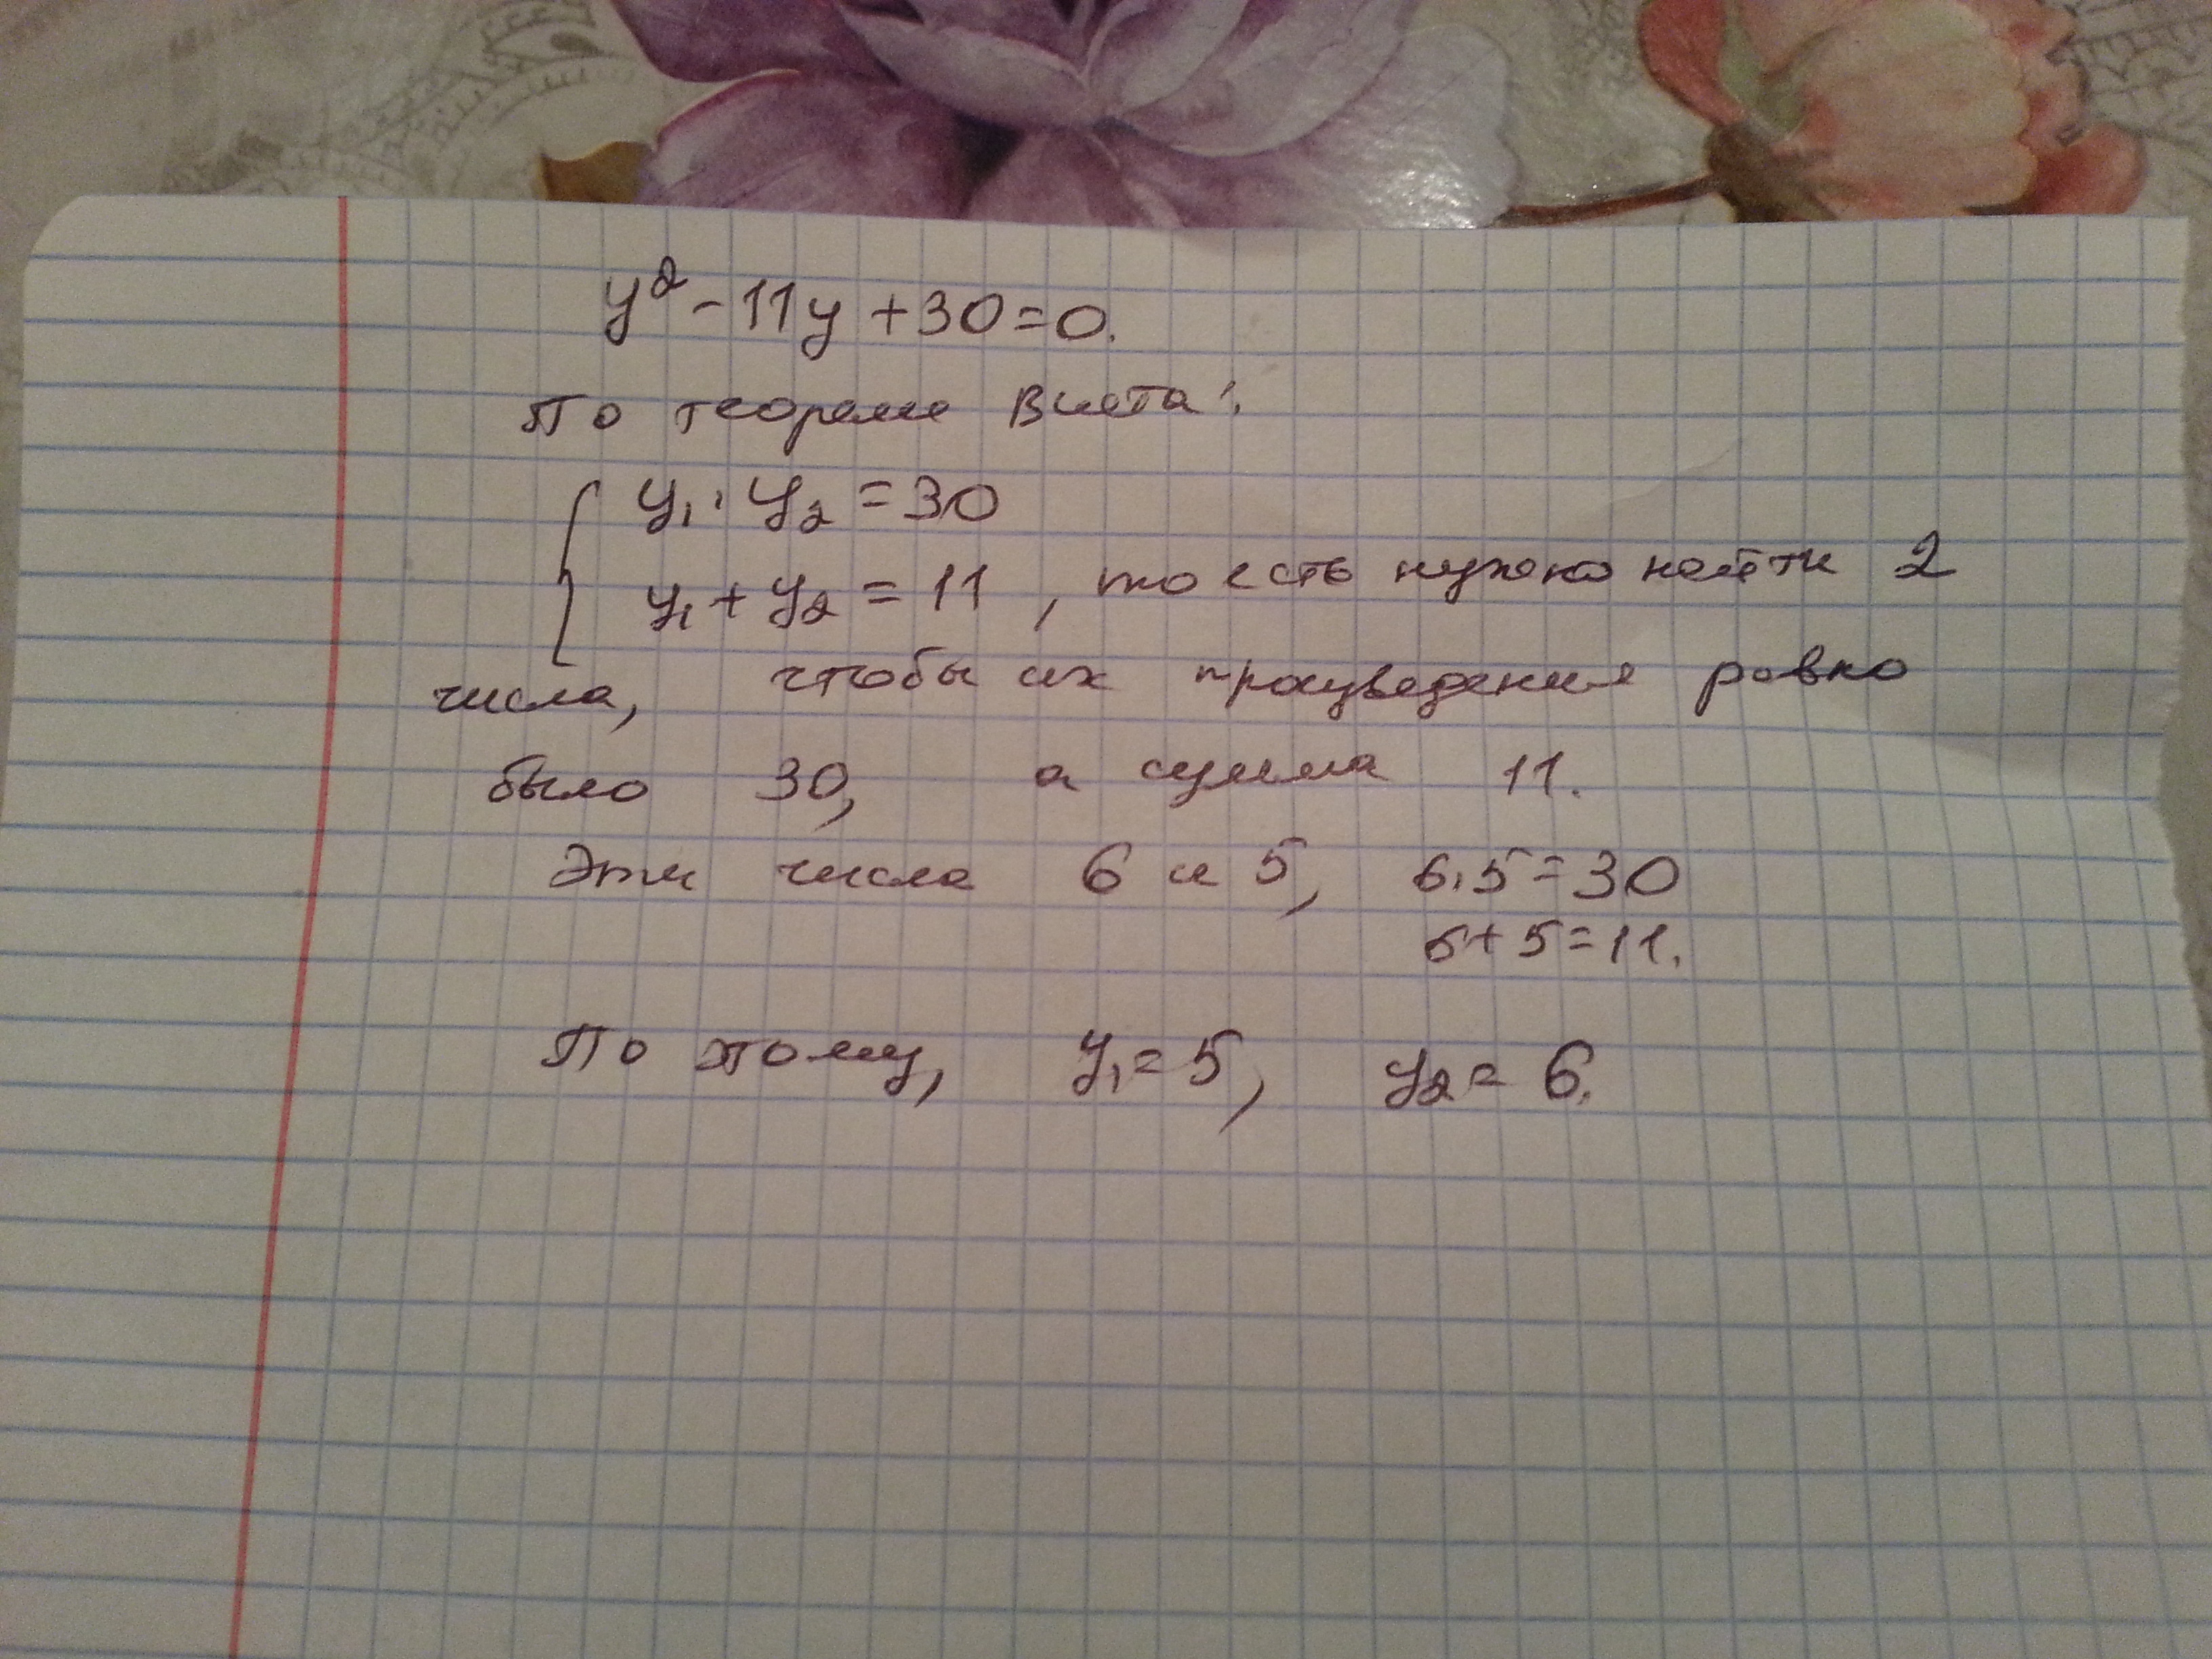 y² - 11y + 30 = 0.
По теореме Виета:
{ y₁ · y₂ = 30
y₁ + y₂ = 11, то есть нужно найти 2
числа, чтобы их произведение ровно
было 30, а сумма 11.
Эти числа 6 и 5, 6·5=30
6+5=11.
По этому, y₁ = 5, y₂ = 6.